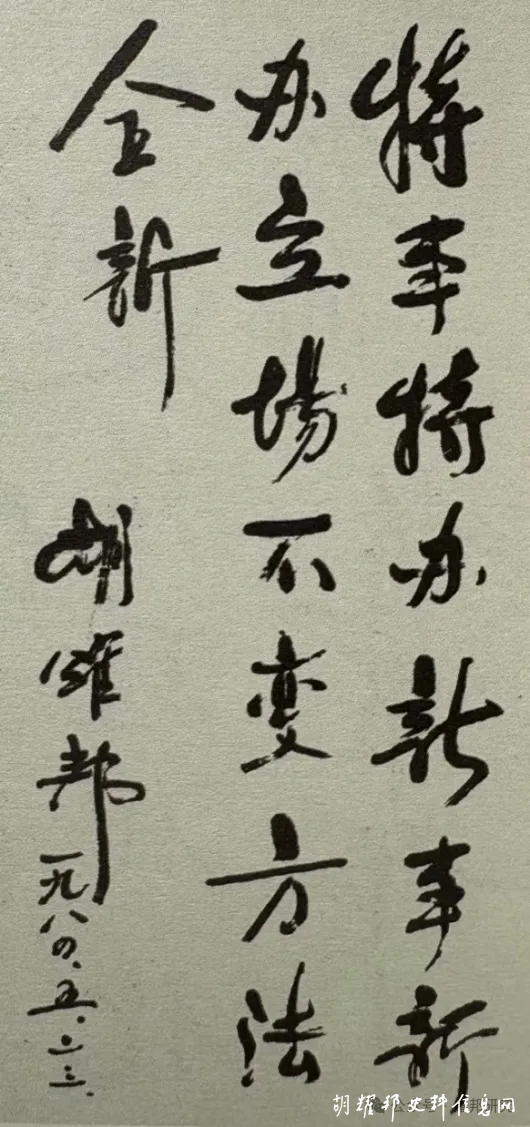 特事特办新事新
办立場不变方法
全新
胡耀邦
一九八四、五、二三、
胡耀邦史料信息网